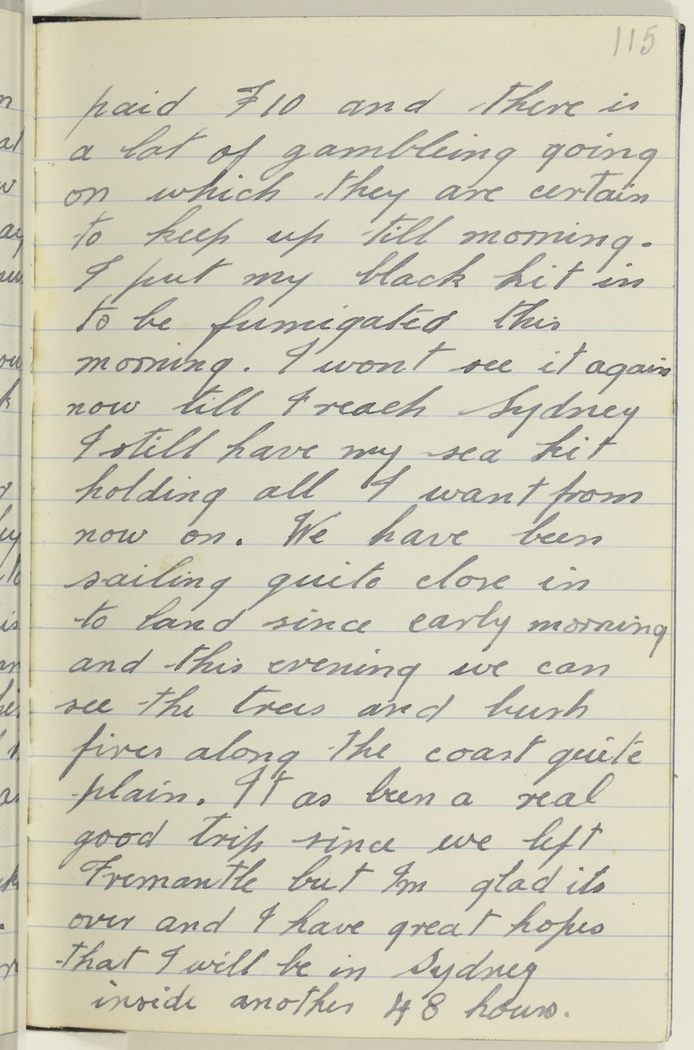 115
paid £10 and there is
a lot of gambleing going
on which they are certain
to keep up till morning.
I put my black kit in
to be fumigated this
morning. I wont see it again
now till I reach Sydney
I still have my sea kit
holding all I want from
now on. We have been
sailing quite close in
to land since early morning
and this evening we can
see the trees and bush
fires along the coast quite
plain. It as been a real
good trip since we left
Fremantle but Im glad its
over and I have great hopes
that I will be in Sydney
inside another 48 hours.